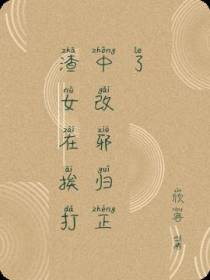 zhā nǚ zài ái dǎ
渣女在挨打
zhōng gǎi xié guī zhèng
中改邪归正
le
了